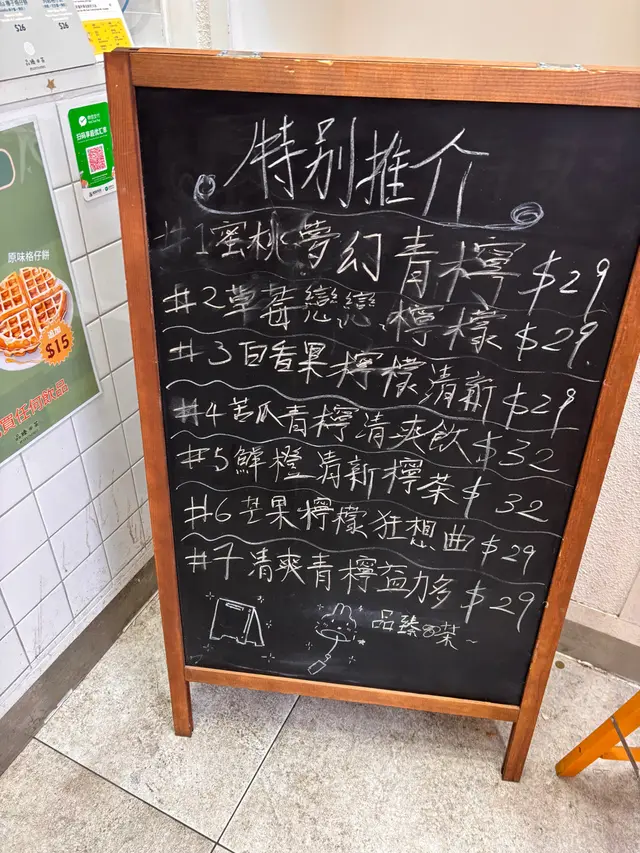 $26
$26
原味格仔餅
追加
$15
買任何飲品
特別推介
#1蜜桃夢幻青檸 $29
#2草莓戀戀檸檬 $29
#3百香果檸檬清新 $29
#4苦瓜青檸清爽飲 $32
#5鮮橙清新檸茶 $32
#6芒果檸檬狂想曲 $29
#7清爽青檸益力多 $29
品臻の菜~